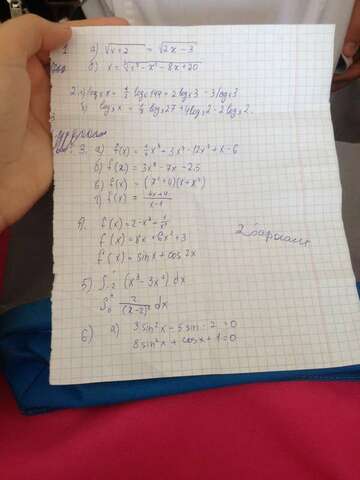 1. а) √x+2 = √2x-3
б) x = ∛x³-x²-8x+20
2. а) log₆x = log₆144 + 2log₆3 - 3log₆3
б) log₂x = log₂27 + 4log₂2 - 2log₂2
3. а) f(x) = x⁴ + 3x³ - 12x² + x - 6
б) f(x) = 3x⁴ - 7x - 25
в) f(x) = (7+4)(x+x²)
г) f(x) = 4x+4/x-1
4. f(x) = 2 - x⁴ + 1/x³
f(x) = 8x + 6x² + 3
f(x) = sin x + cos 2x
2 вариант
5) ∫₋₂ (x³ - 3x²) dx
∫₀ 2/(x-2)² dx
6) а) 3sin²x - 5sin - 2 = 0
8sin²x + cosx + 1 = 0